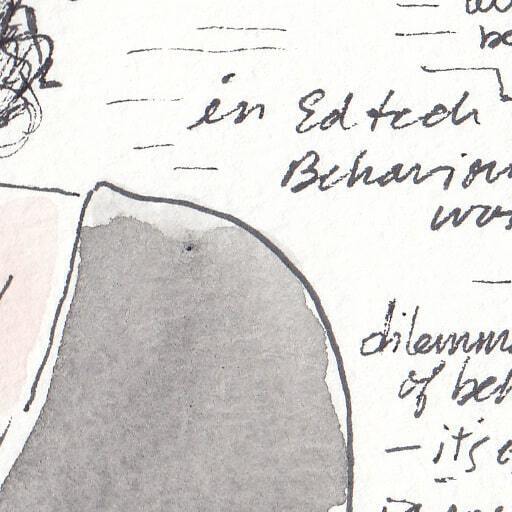 be
in Edtech
Behaviou
was
dilemm
of beh
- it's